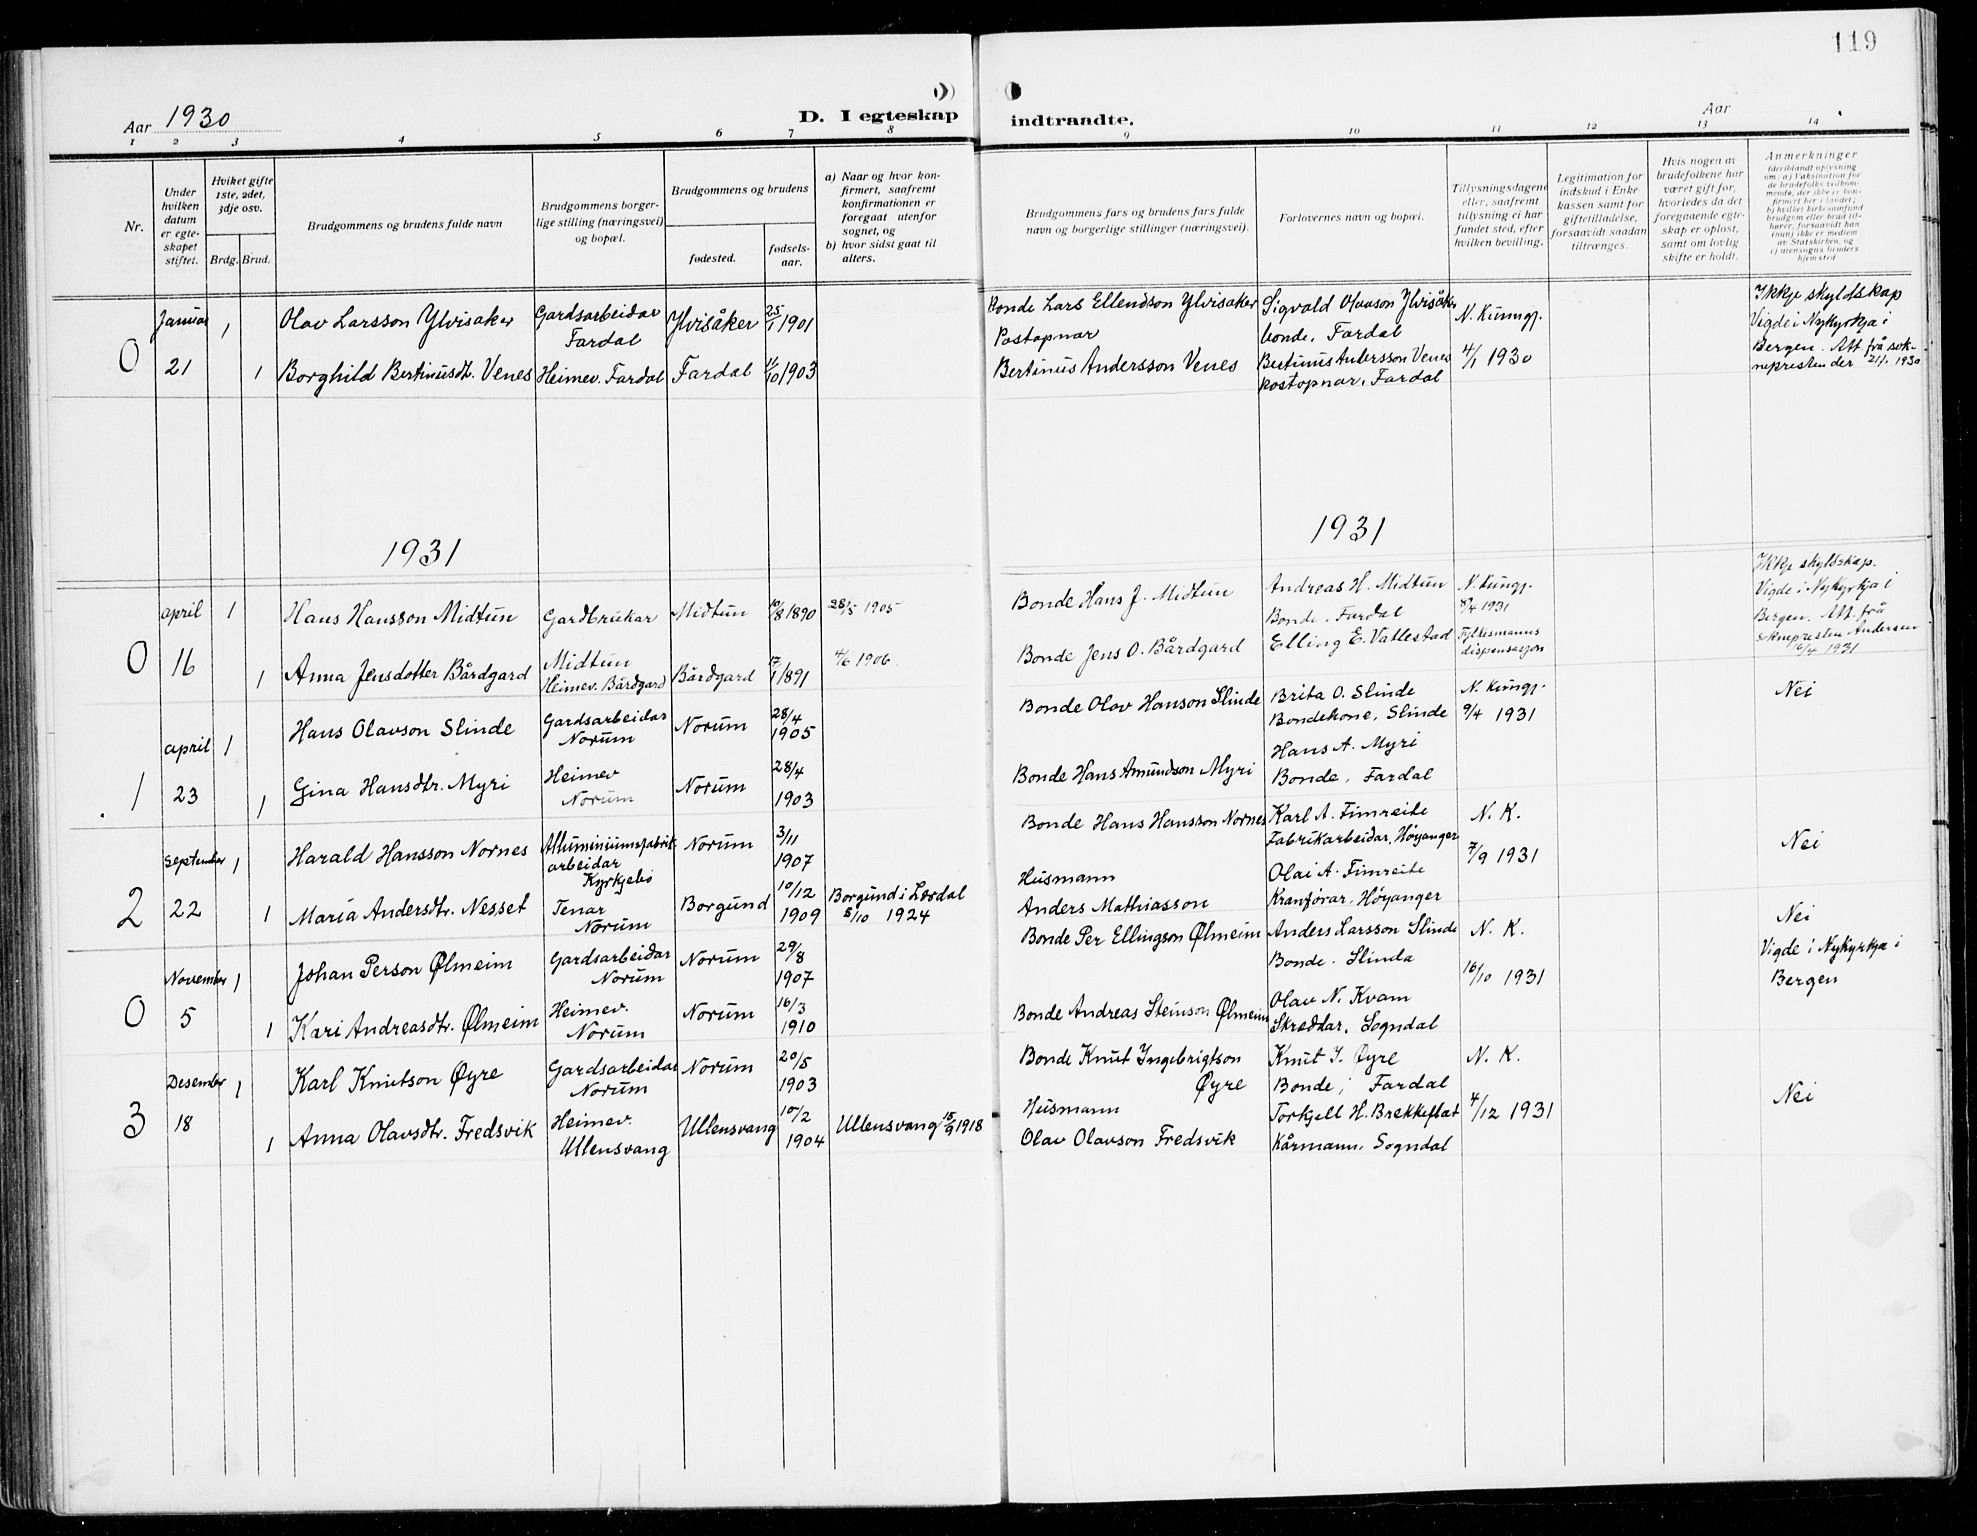 119
Aar 1930
D. I egteskap indtraadte.
Aar
1 2 3 4 5 6 7 8 9 10 11 12 13 14
Nr.
Under hvilken datum er egteskapet stiftet.
Hviket gifte 1ste, 2det, 3dje osv.
Brdg. Brud.
Brudgommens og brudens fulde navn
Brudgommens borgerlige stilling (næringsvei) og bopæl.
Brudgommens og brudens
fødested.
fødselsaar.
a) Naar og hvor konfirmert, saafremt konfirmationen er foregaat utenfor sognet, og
b) hvor sidst gaat til alters.
Brudgommens fars og brudens fars fulde navn og borgerlige stillinger (næringsvei).
Forlovernes navn og bopæl.
Tillysningsdagene eller, saafremt tillysning ei har fundet sted, efter hvilken bevilling.
Legitimation for indskud i Enkekassen samt for giftetilladelse, forsaavidt saadan tiltrænges.
Hvis nogen av brudefolkene har været gift før, hvorledes da det foregaaende egteskap er opløst, samt om lovlig skifte er holdt.
Anmerkninger
(deriblandt oplysning om: a) Vaksination for de brudefolks vedkommende, der ikke er konfirmert her i landet; b) hvilket kirkesamfund brudgom eller brud tilhører, forsaavidt han (hun) ikke er medlem av Statskirken, og c) mensogns bruders hjemsted
Januar 1 Olav Larsson Ylvisaker Gardsarbeidar Fardal Ylvisåker 25/1 1901
Bonde Lars Ellendson Ylvisaker Sigvald Olavson Ylvisåker bonde, Fardal N. Kunngj. 4/1 1930
Ikkje skyldskap
Vigde i Nykyrkja i
Bergen. Att. frå sok-
nepresten der 21/1. 1930
0 21 1 Borghild Bertinusdt. Venes Heimev. Fardal Fardal 11/10 1903
Postopnar
Bertinus Andersson Venes Bertinus Andersson Venes
Postopnar, Fardal
1931
1931
april 1 Hans Hansson Midtun Gardbrukar Midtun Midtun 10/8 1890 28/5 1905
Bonde Hans J. Midtun Andreas H. Midtun Bonde, Fardal N. Kungj. 8/4 1931
Ikkje skyldskap.
Vigde i Nykyrkja i
Bergen. Att. frå
soknepresten Andersen
16/4 1931
0 16 1 Anna Jensdotter Bårdgard Heimev. Bårdgard Bårdgard 17/1 1891 4/6 1906
Bonde Jens O. Bårdgard Elling E. Vallestad Fylkesmanns dispensasjon
april 1 Hans Olavson Slinde Gardsarbeidar Norum Norum 28/4 1905
Bonde Olav Hanson Slinde Brita O. Slinde Bondekone, Slinde N. Kungj. 9/4 1931 Nei
1 23 1 Gina Hansdtr. Myri Heimev Norum Norum 28/4 1903
Bonde Hans Amundson Myri Hans A. Myri Bonde, Fardal
September 1 Harald Hansson Nornes Alluminiumsfabrik-arbeidar Kyrkjebø Norum 3/11 1907
Bonde Hans Hansson Nornes Karl A. Fimreite Fabrikarbeidar, Høyanger N. K. 7/9 1931 Nei
2 22 1 Maria Andersdtr. Nesset Tenar Norum Borgund 10/12 1909 Borgund i Lærdal 5/10 1924
Husmann
Anders Mathiasson Olai A. Fimreite
Kranførar, Høyanger
November 1 Johan Person Ølmeim Gardsarbeidar Norum Norum 29/8 1907
Bonde Per Ellingson Ølmeim Anders Larsson Slinde Bonde. Slinda N. K. 16/10 1931
Nei
Vigde i Nykyrkja i
Bergen
0 5 1 Kari Andreasdtr. Ølmeim Heimev. Norum Norum 16/3 1910
Bonde Andreas Steinson Ølmeim Olav N. Kvam Skreddar, Sogndal
Desember 1 Karl Knutson Øyre Gardsarbeidar Norum Norum 20/5 1903
Bonde Knut Ingebrigtson Øyre Knut I. Øyre Bonde, Fardal N. K. 4/12 1931 Nei
3 18 1 Anna Olavsdtr. Fredsvik Heimev. Ullensvang Ullensvang 10/2 1904 Ullensvang 15/9 1918
Husmann
Olav Olavson Fredsvik Torkjell H. Brekkeflat
Kårmann, Sogndal